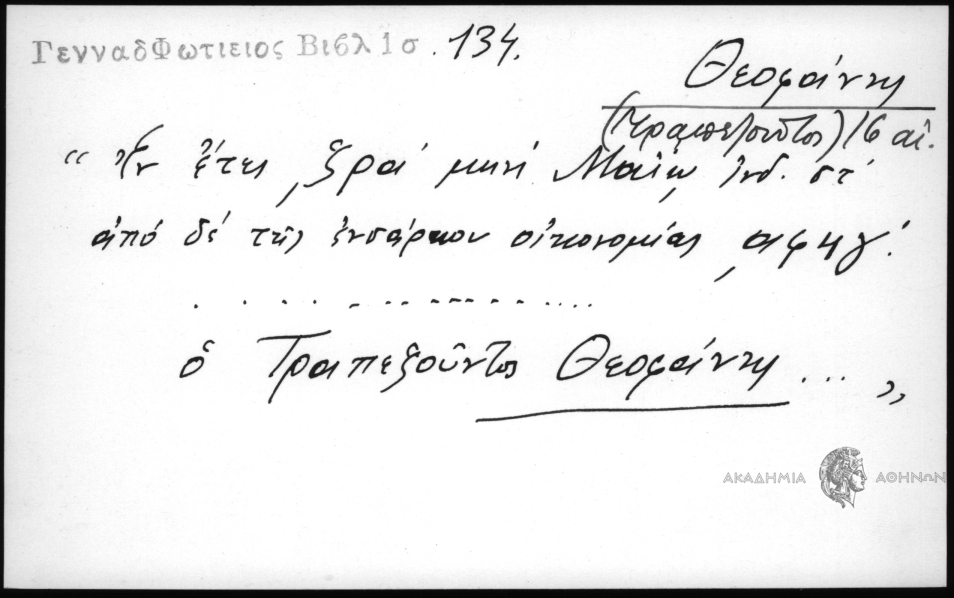 ΓενναδΦωτιειος Βιβλ 1 σ. 134.
Θεοφάνης
(Τραπεζοῦντος) 16 αἰ.
“ Ἐν ἔτει ͵ζρα΄ μηνί Μαίῳ ἰνδ. στ΄
ἀπό δέ τῆς ἐνσάρκου οἰκονομίας ͵αφμγ΄.
. . . . . . . . . . . . . . . . . .
ὁ Τραπεζοῦντος Θεοφάνης ... ”
ΑΚΑΔΗΜΙΑ ΑΘΗΝΩΝ